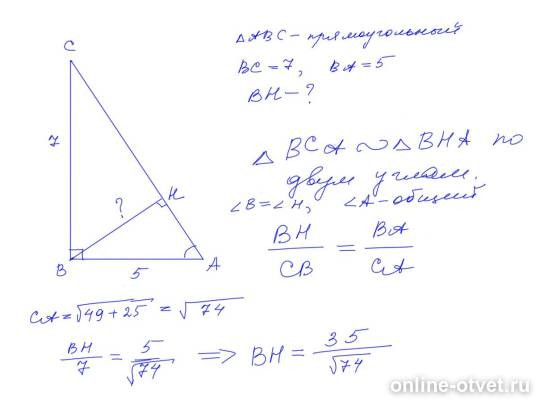 △ABC – прямоугольный
BC = 7, BA = 5
BH – ?
C
7
H
?
B
5
A
△ BCA ∾ △ BHA по
двум углам.
∠B = ∠H, ∠A – общий
BH/CB = BA/CA
CA = √49 + 25 = √74
BH/7 = 5/√74 => BH = 35/√74
online-otvet.ru